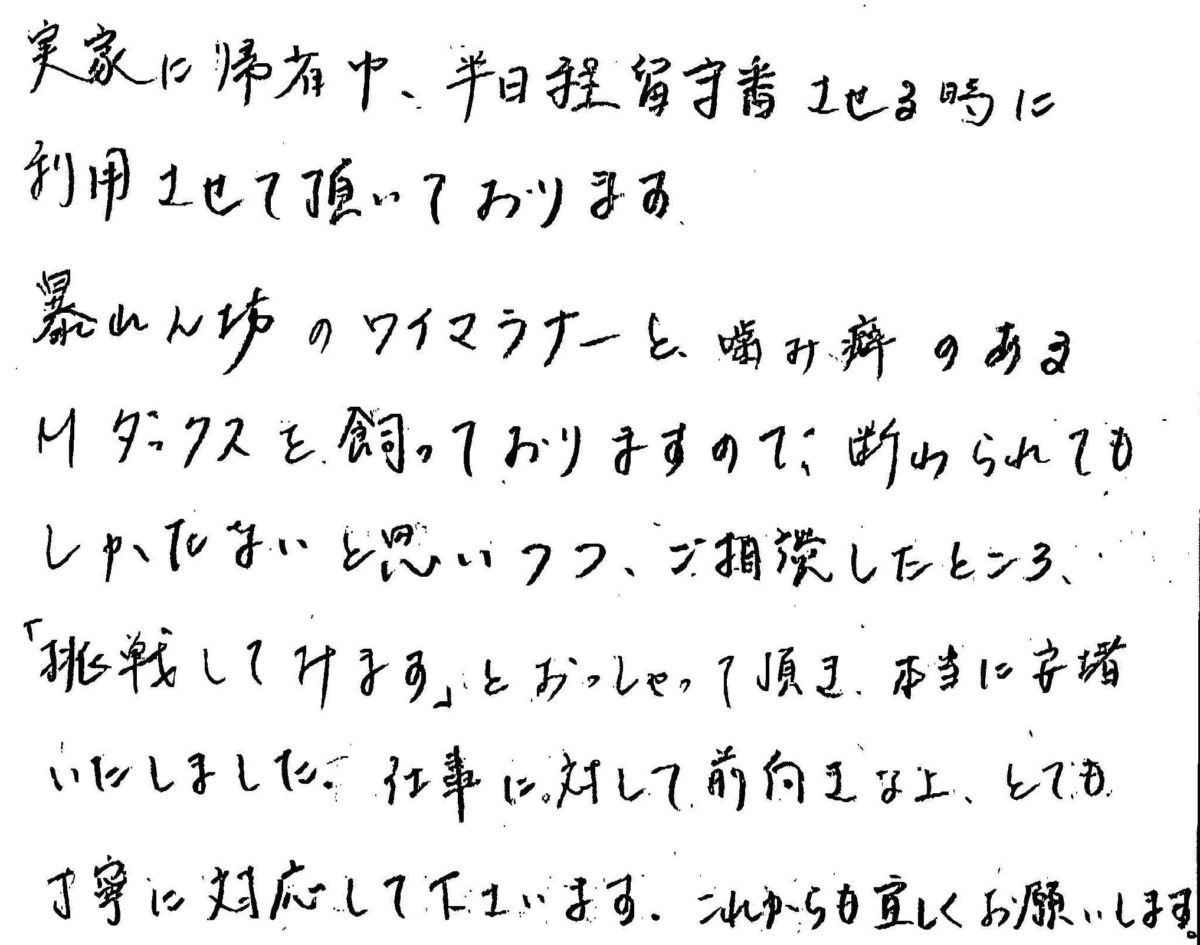 実家に帰省中、半日程留守番させる時に
利用させて頂いております。
暴れん坊のワイマラナーと、噛み癖のある
Mダックスを飼っておりますので、断わられても
しかたないと思いつつ、ご相談したところ、
「挑戦してみます」とおっしゃって頂き、本当に安堵
いたしました。仕事に対して前向きな上、とても
丁寧に対応して下さいます。これからも宜しくお願いします。